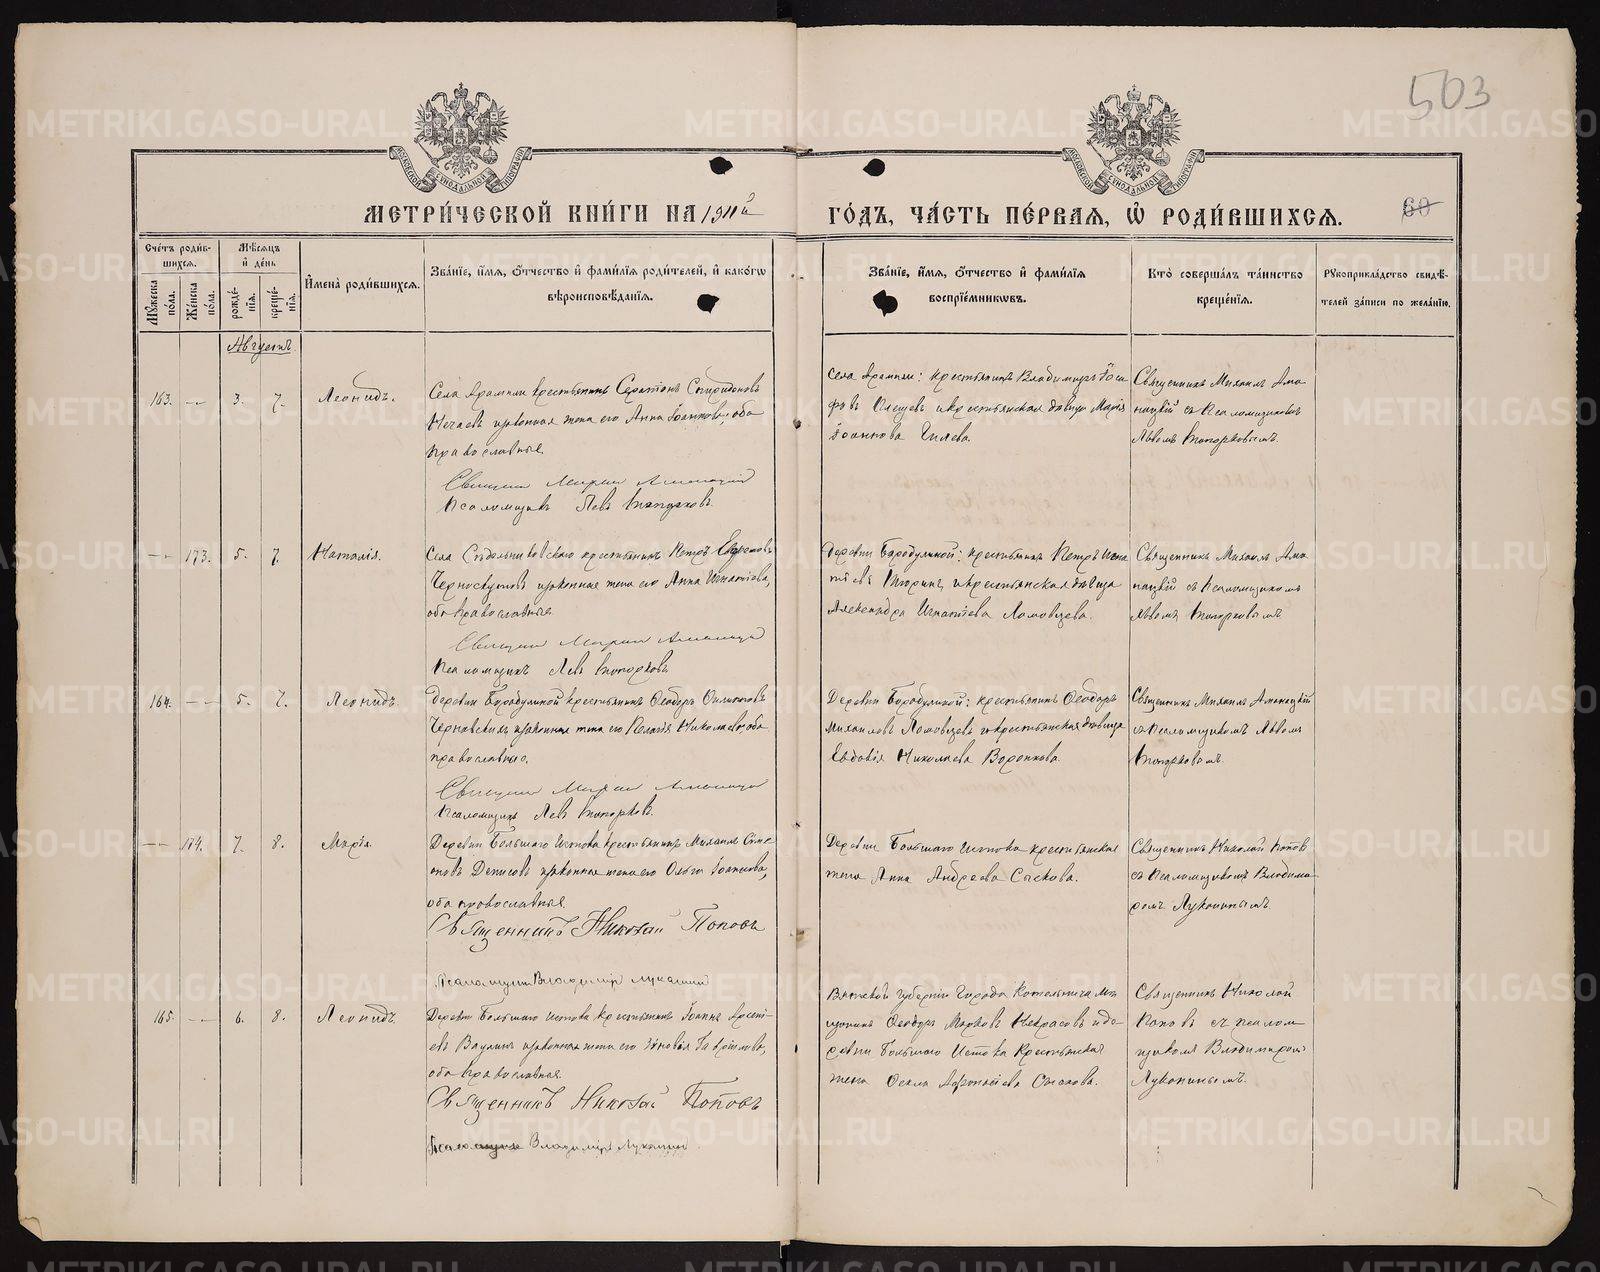 503
МОСКОВСКОЙ СѴНОДАЛЬНОЙ ТИПОГРАФІИ
МОСКОВСКОЙ СѴНОДАЛЬНОЙ ТИПОГРАФІИ
МЕТРИ́ЧЕСКОЙ КНИ́ГИ НА 1911й
ГО́ДЪ, ЧА́СТЬ ПЕ́РВАЯ, Ѿ РОДИ́ВШИХСѦ.
60
Сче́тъ роди́в-
шихсѧ.
Мѣ́сѧцъ
и҆ де́нь.
Мꙋ́жеска по́ла.
Же́нска по́ла.
рожде́-нїѧ.
креще́-нїѧ.
И҆мена̀ роди́вшихсѧ.
Зва́нїе, и҆́мѧ, ѻ҆́тчество и҆ фами́лїѧ роди́телей, и҆ како́гѡ
вѣроисповѣ́данїѧ.
Зва́нїе, и҆́мѧ, ѻ҆́тчество и҆ фами́лїѧ
воспрїе́мникѡвъ.
Кто̀ соверша́лъ та́инство
креще́нїѧ.
Рꙋкоприкла́дство свидѣ́-
телей за́писи по жела́нїю.
Августъ
163. -- 3. 7. Леонидъ.
Села Арамили крестьянинъ Спиридоновъ
Нечаевъ и законная жена его Анна Іоаннова, оба
православные.
Священникъ Михаилъ
Псаломщикъ Левъ Топорковъ.
Села Арамили: крестьянинъ Владимиръ Іоси-
фовъ Плещевъ и крестьянская дѣвица Марія
Іоаннова Гилева.
Священникъ Михаилъ Ама-
нацкій съ псаломщикомъ
Львомъ Топорковымъ.
-- 173. 5. 7. Наталія.
Села крестьянинъ Петръ
Черноскутовъ и законная жена его Анна Игнатіева,
оба православные.
Священникъ Михаилъ
Псаломщикъ Левъ Топорковъ
Деревни Бородулиной: крестьянинъ Петръ Игна-
тіевъ и крестьянская дѣвица
Александра Игнатіева Ломовцева.
Священникъ Михаилъ Ама-
нацкій съ псаломщикомъ
Львомъ Топорковымъ
164. -- 5. 7. Леонидъ.
Деревни Бородулиной крестьянинъ Ѳеодоръ Филипповъ
и законная жена его Пелагія Николаева, оба
православные.
Священникъ Михаилъ
Псаломщикъ Левъ Топорковъ.
Деревни Бородулиной: крестьянинъ Ѳеодоръ
Михаиловъ Ломовцевъ и крестьянская дѣвица
Евдокія Николаева Воронкова.
Священникъ Михаилъ Аманацкій
съ псаломщикомъ Львомъ
Топорковымъ.
-- 174. 7. 8. Марія.
Деревни Большаго Истока крестьянинъ Михаилъ Симе-
оновъ Денисовъ и законная жена его Ольга Іоаннова,
оба православные.
Священникъ Николай Поповъ
Псаломщикъ Владиміръ Лукашинъ
Деревни Большаго Истока крестьянская
жена Анна Андреева Сыскова.
Священникъ Николай Поповъ
съ псаломщикомъ Владими-
ромъ Лукашинымъ.
165. -- 6. 8. Леонидъ.
Деревни Большаго Истока крестьянинъ Іоаннъ Арсені-
евъ Ваулинъ и законная жена его Зиновія
оба православные.
Священникъ Николай Поповъ
Псаломщикъ Владиміръ Лукашинъ
Вятской губерніи города Котельнича мѣ-
щанинъ Ѳеодоръ Марковъ Некрасовъ и де-
ревни Большаго Истока крестьянская
жена Ѳекла Сыскова.
Священникъ Николай
Поповъ съ псалом-
щикомъ Владимиромъ
Лукашинымъ.
METRIKI.GASO-URAL.RU